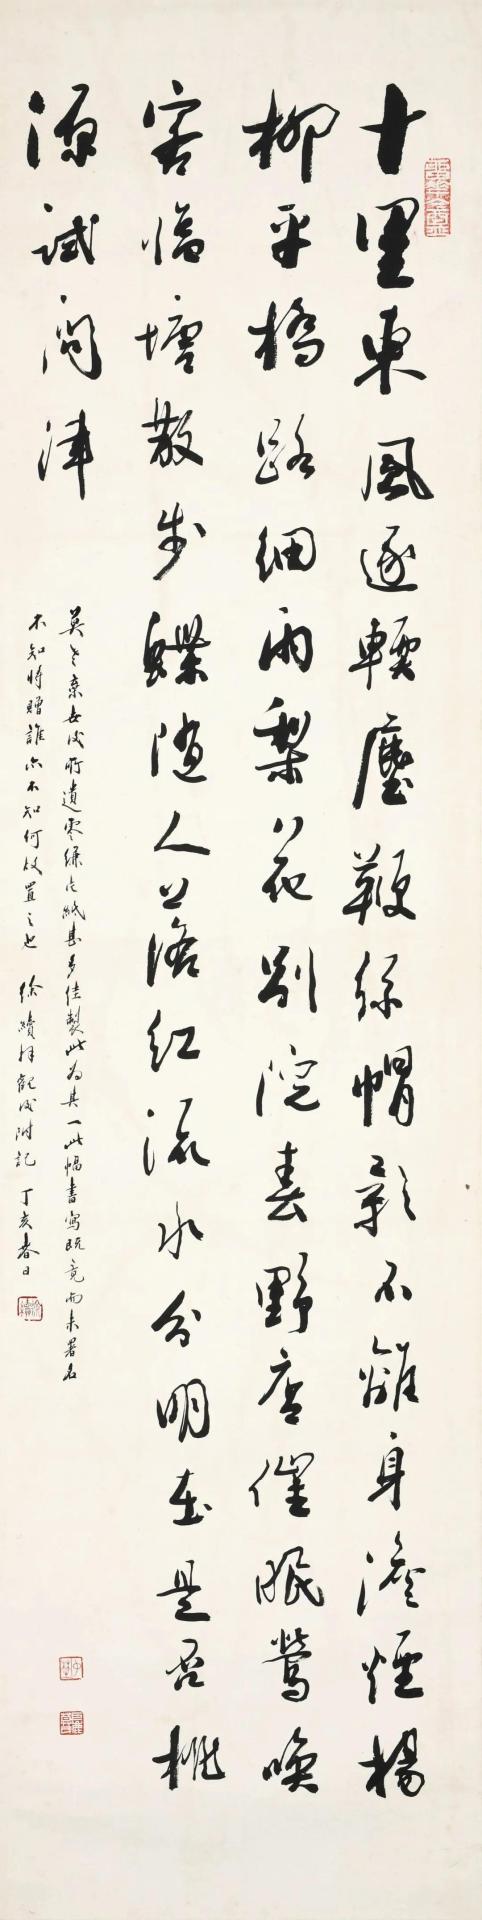 十里東風逐輭塵鞭絲帽影不離身澹煙楊
柳平橋路細雨梨花別院春野店催眠鶯喚
客臨塘散步蝶隨人落紅流水分明在是否桃
源試問津
英老棄世後所遺零縑片紙甚多佳製此為其一此幅書寫既竟而未署名
不知將贈誰亦不知何故置之也 徐績拜觀後附記 丁亥春日